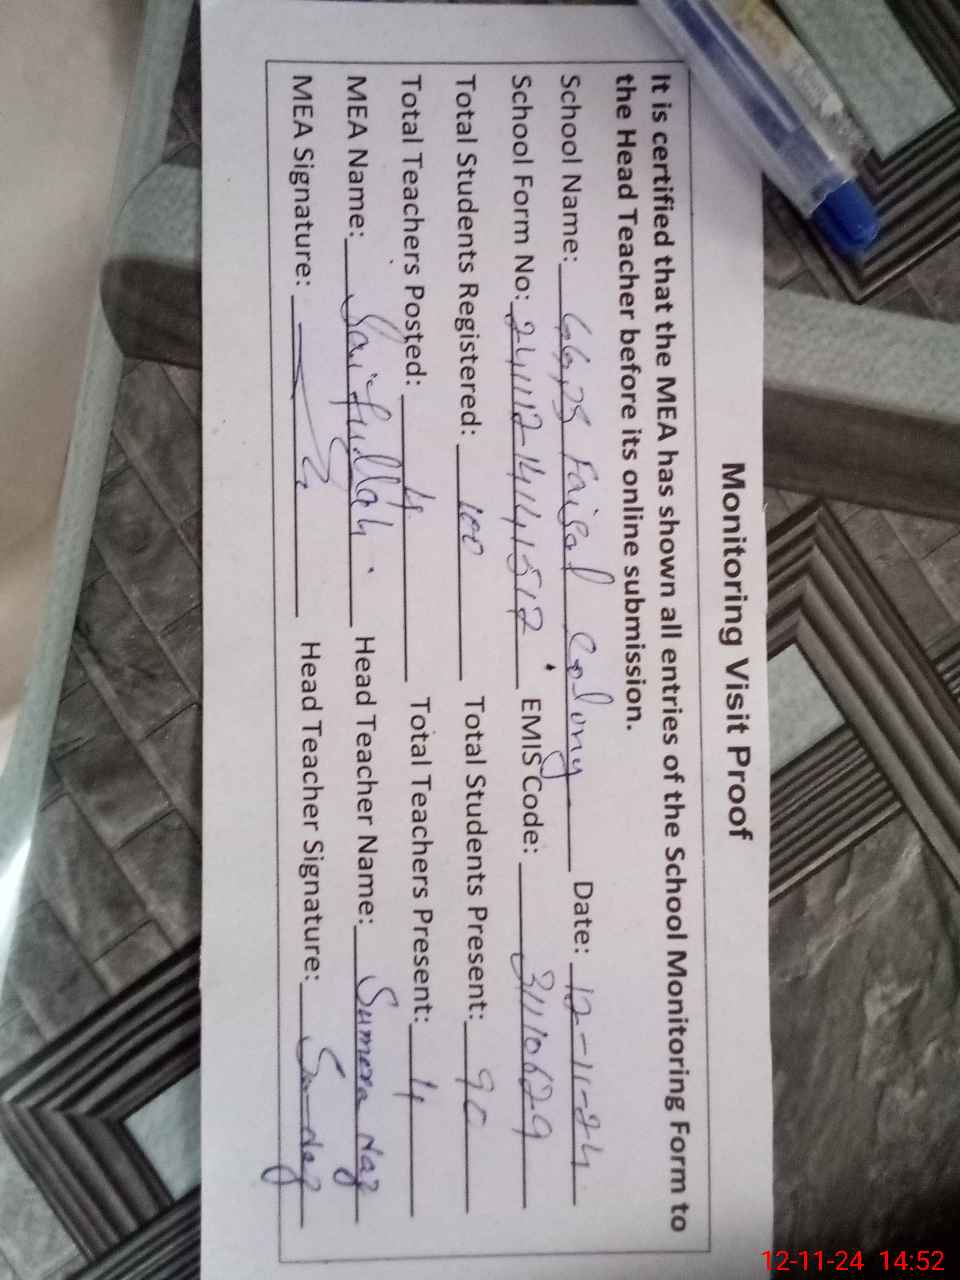 Monitoring Visit Proof
It is certified that the MEA has shown all entries of the School Monitoring Form to
the Head Teacher before its online submission.
School Name: Faisal Colony Date: 12-11-24
School Form No: EMIS Code: 31110629
Total Students Registered: 100 Total Students Present: 90
Total Teachers Posted: 4 Total Teachers Present: 4
MEA Name: Saifullah Head Teacher Name: Sumera Naz
MEA Signature: Head Teacher Signature:
12-11-24 14:52